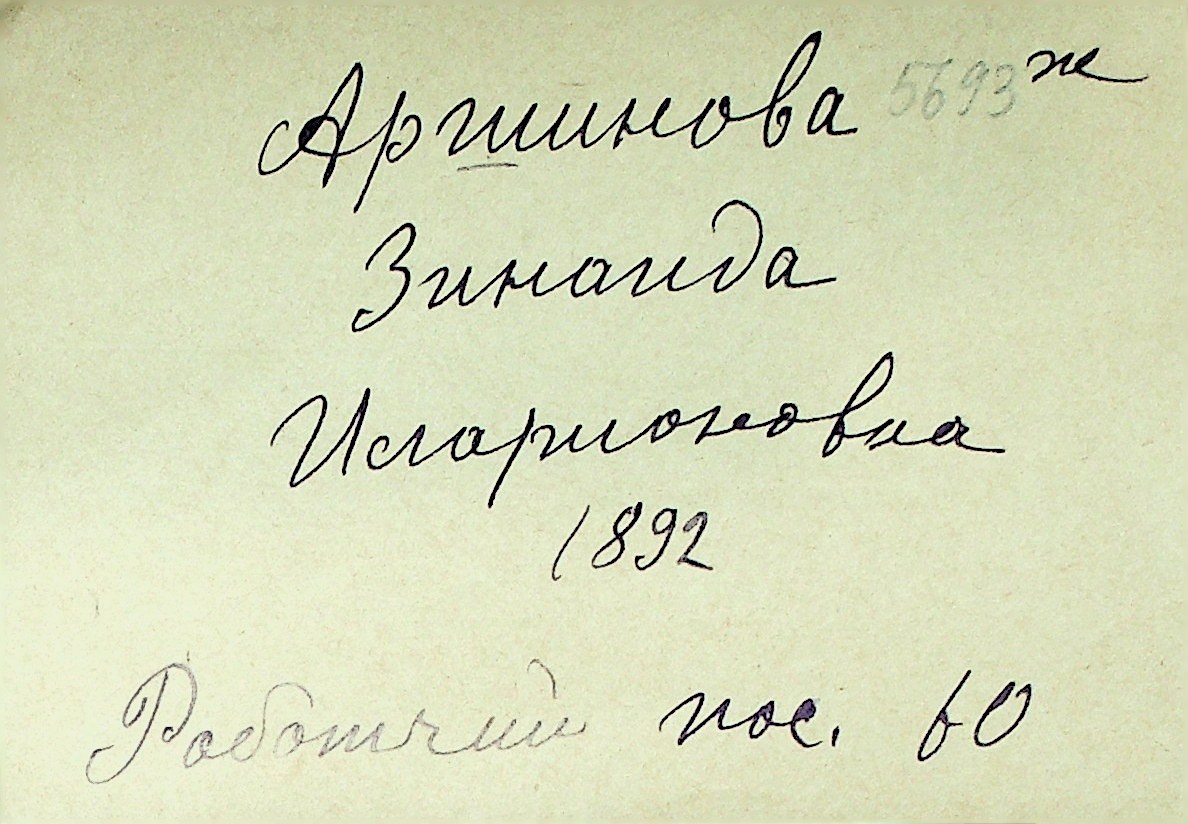 Аршинова 5693 ж
Зинаида
Иларионовна
1892
Работчий пос. 60